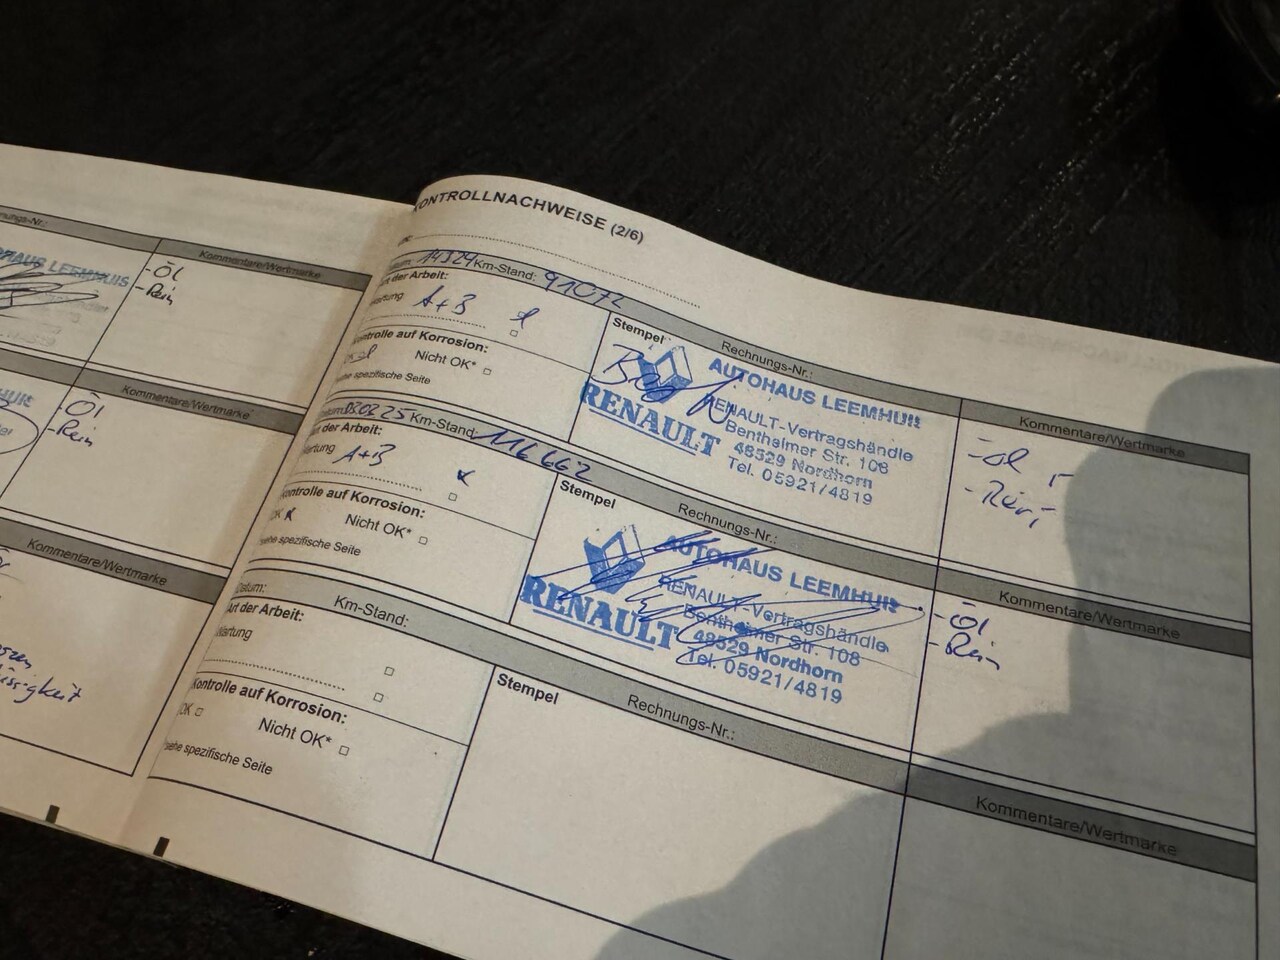 AUTOHAUS LEEMHUIS
Kommentare/Wertmarke
-Öl
-Rein
Kommentare/Wertmarke
-Öl
-Rein
Kommentare/Wertmarke
KONTROLLNACHWEISE (2/6)
Km-Stand: 91072
Art der Arbeit:
Wartung A+B
Kontrolle auf Korrosion:
Nicht OK*
siehe spezifische Seite
Stempel
Rechnungs-Nr.:
AUTOHAUS LEEMHUIS
RENAULT-Vertragshändle
Bentheimer Str. 108
48529 Nordhorn
Tel. 05921/4819
RENAULT
Kommentare/Wertmarke
Datum: 030225 Km-Stand: 116662
Art der Arbeit:
Wartung A+B
Kontrolle auf Korrosion:
OK Nicht OK*
siehe spezifische Seite
Stempel
Rechnungs-Nr.:
AUTOHAUS LEEMHUIS
RENAULT-Vertragshändle
Bentheimer Str. 108
48529 Nordhorn
Tel. 05921/4819
RENAULT
Kommentare/Wertmarke
-Öl
-Rein
Datum: Km-Stand:
Art der Arbeit:
Wartung
Kontrolle auf Korrosion:
OK Nicht OK*
siehe spezifische Seite
Stempel
Rechnungs-Nr.:
Kommentare/Wertmarke